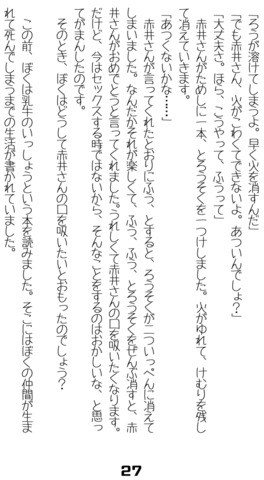 ろうが溶けてしまうよ。早く火を消すんだ」
「でも赤井さん、火がこわくてできないよ。あついんでしょ？」
「大丈夫さ。ほら、こうやって、ふうって」
　赤井さんがためしに一本、とろうそくを一つけしました。火がゆれて、けむりを残し
て消えていきます。
「あつくないかな……」
　赤井さんが言ってくれたとおりにふっ、とすると、ろうそくが二ついっぺんに消えて
しまいました。なんだかそれが楽しくて、ふっ、ふっ、とろうそくをぜんぶ消すと、赤
井さんがおめでとうと言ってくれました。うれしくて赤井さんの口を吸いたくなります。
だけど、今はセックスする時ではないから、そんなことをするのはおかしいな、と思っ
てがまんしたのです。
　そのとき、ぼくはどうして赤井さんの口を吸いたいとおもったのでしょう？
　この前、ぼくは乳牛のいっしょうという本を読みました。そこにはぼくの仲間が生ま
れて死んでしまうまでの生活が書かれていました。
27